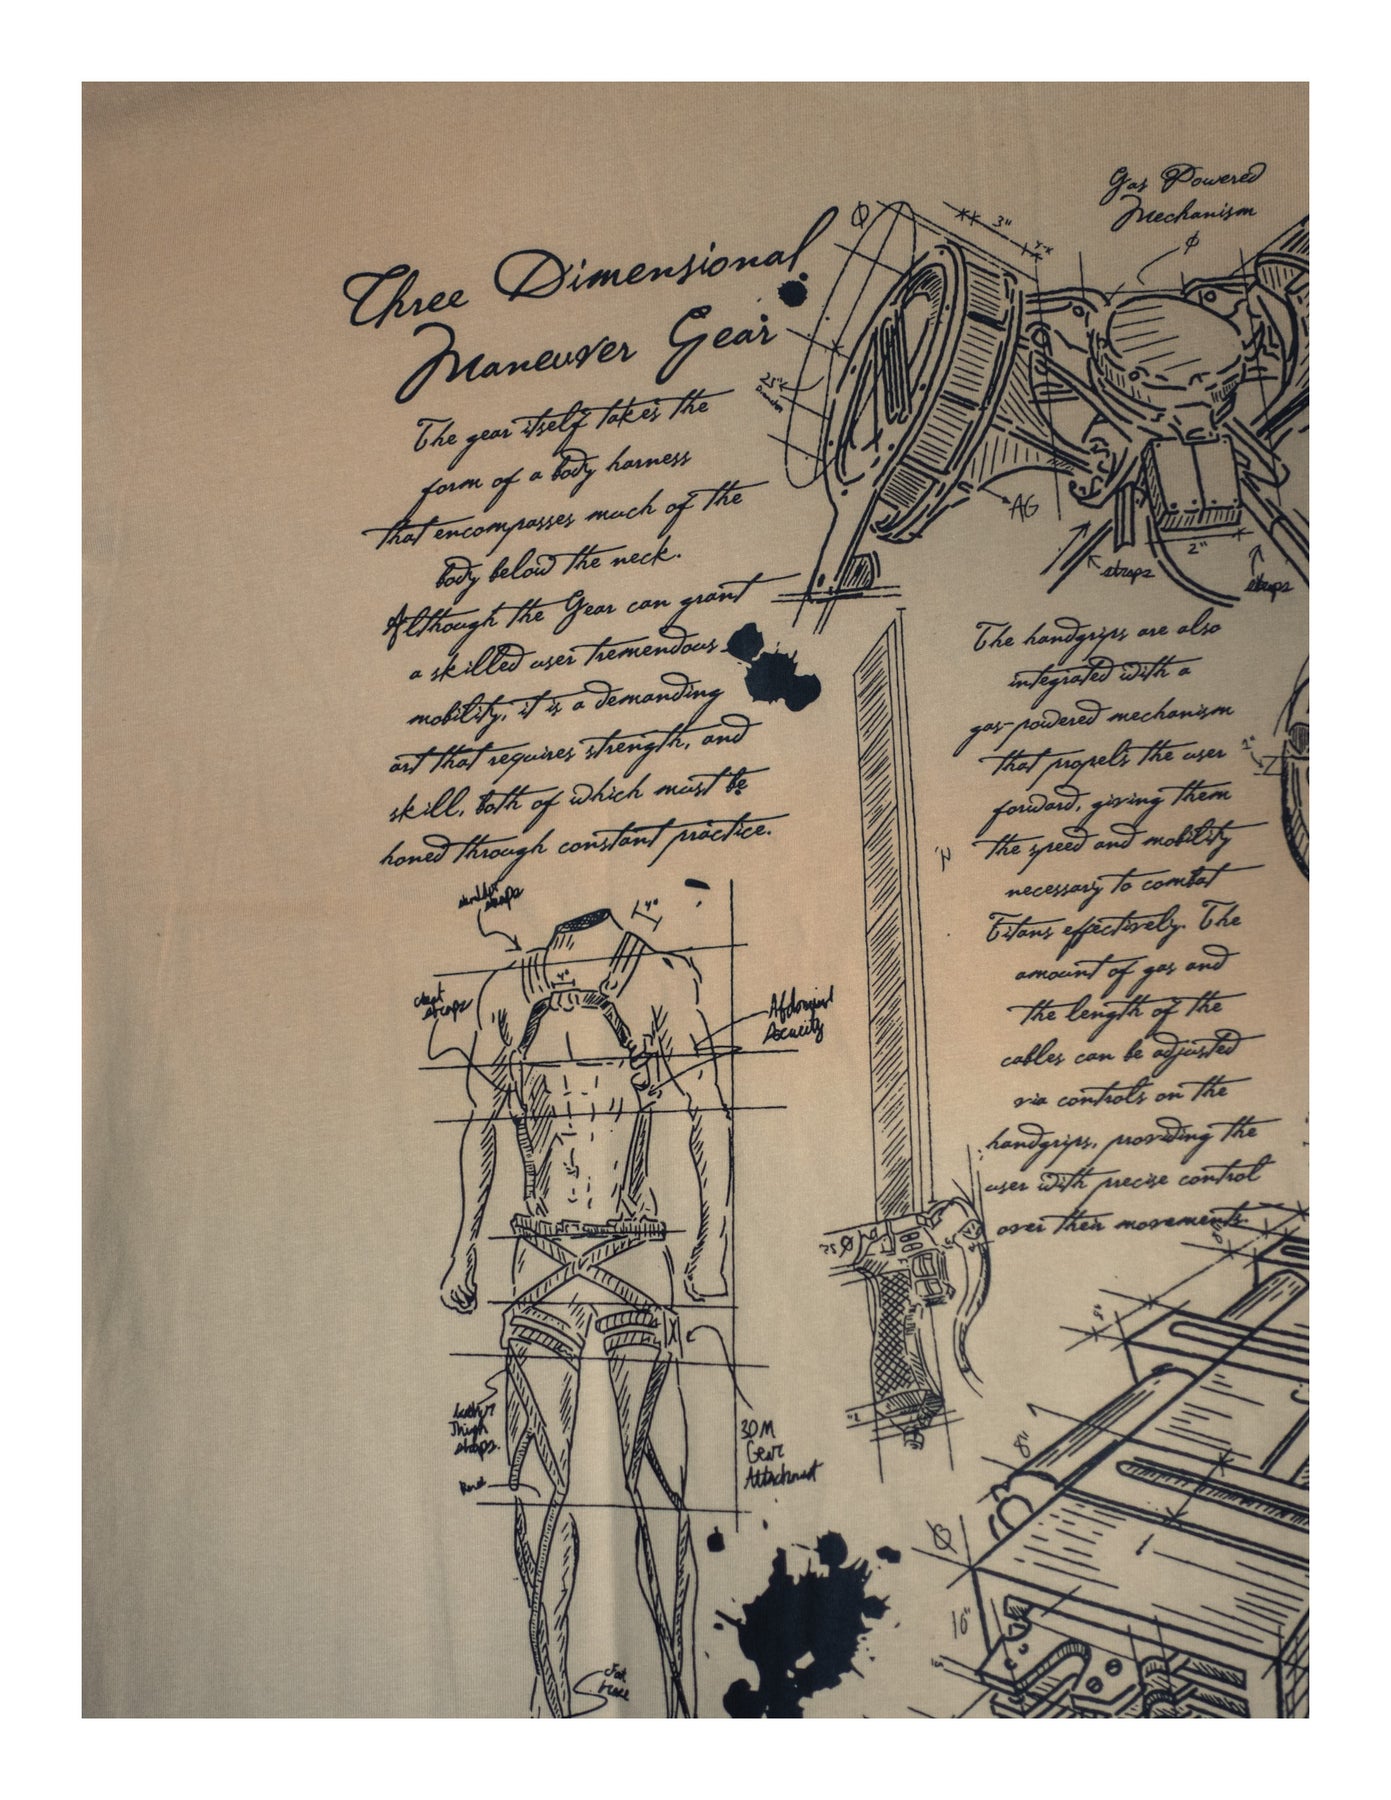 Gas Powered
Mechanism
3"
Three Dimensional
Maneuver Gear
25"
The gear itself takes the
form of a body harness
that encompasses much of the
body below the neck.
Although the Gear can grant
a skilled user tremendous
mobility, it is a demanding
art that requires strength, and
skill, both of which must be
honed through constant practice.
AG
2"
straps
straps
The handgrips are also
integrated with a
gas-powered mechanism
that propels the user
forward, giving them
the speed and mobility
necessary to combat
Titans effectively. The
amount of gas and
the length of the
cables can be adjusted
via controls on the
handgrips, providing the
user with precise control
over their movements.
straps
4"
chest
straps
Abdominal
Security
Thigh
straps.
3DM
Gear
Attachment
8"
16"